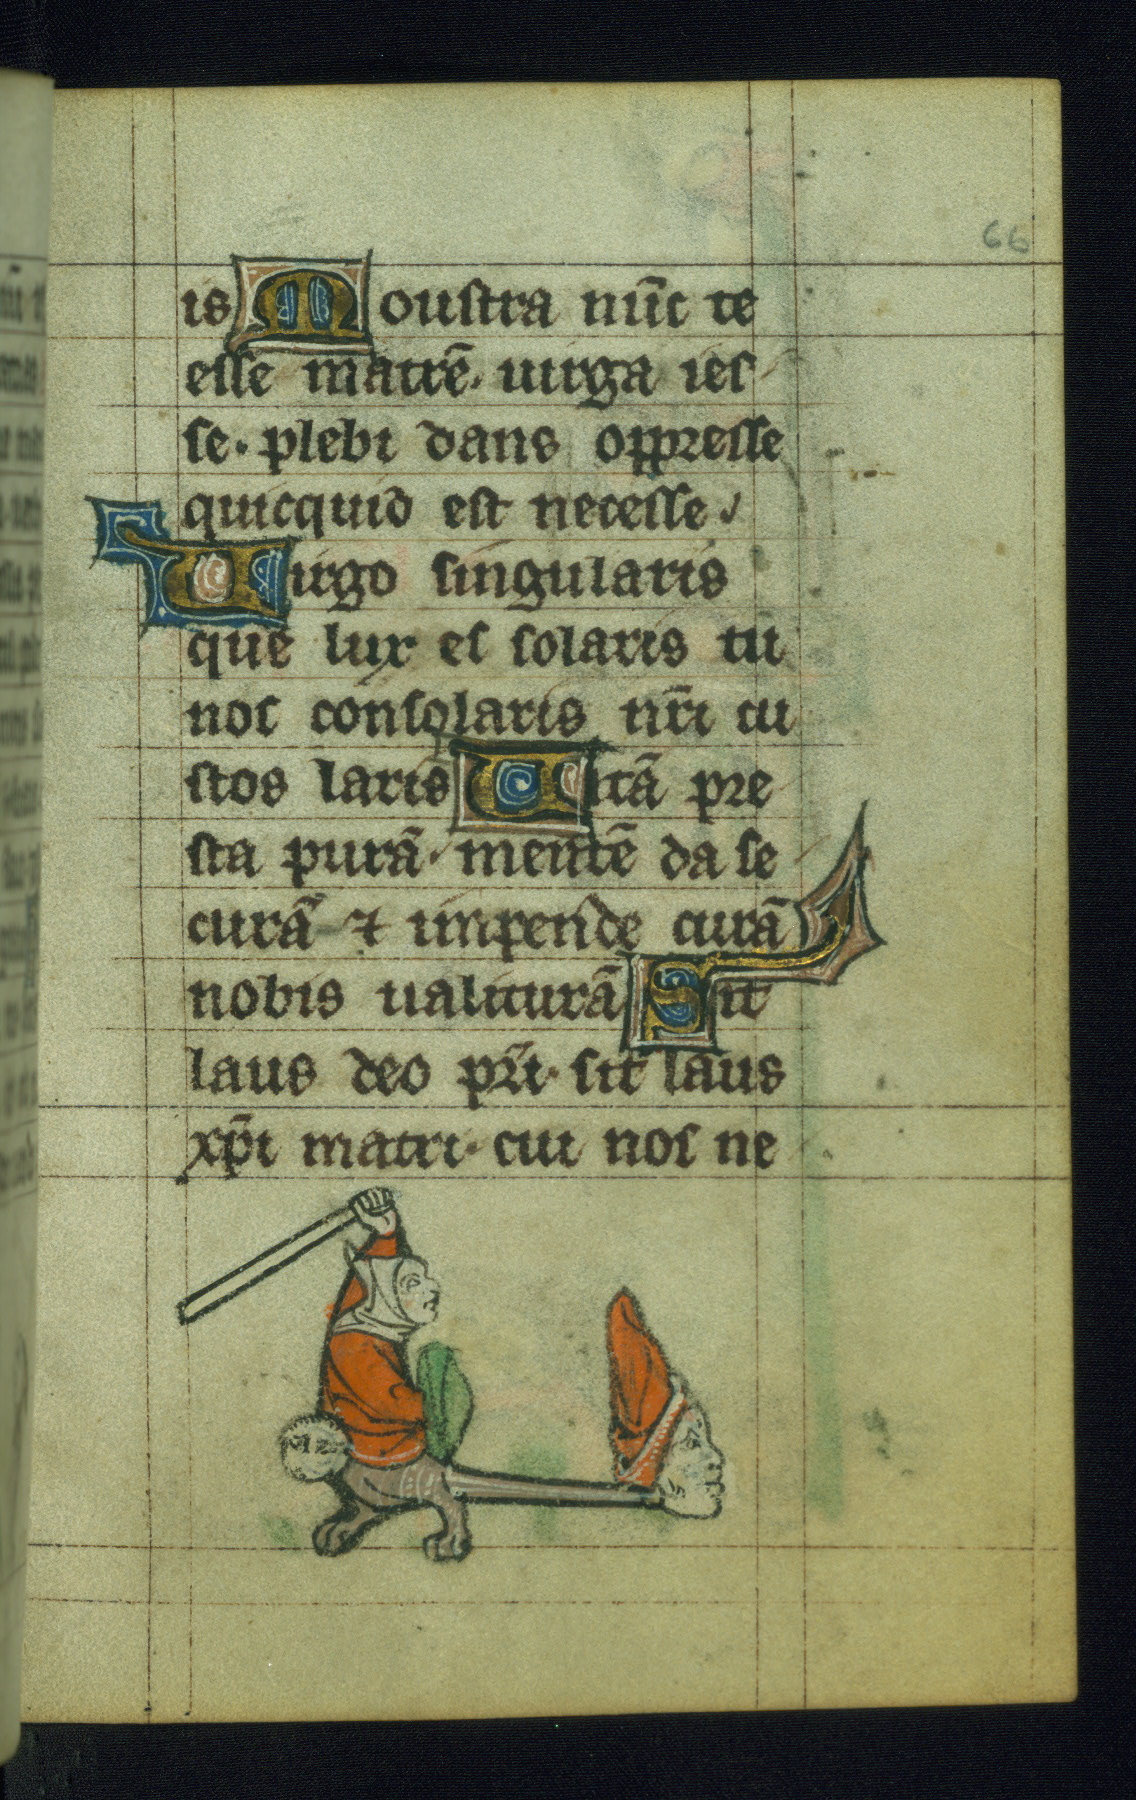 66
is Moustra nūc te
esse matrē. uirga ies
se. plebi dans oppresse
quicquid est necesse
Uirgo singularis
que lux es solaris tu
nos consolaris nr̄i cu
stos laris Uitā pre
sta purā. mentē da se
curā ⁊ impende curā
nobis ualiturā Sit
laus deo pr̄i. sit laus
xp̄i matri. cui nos ne